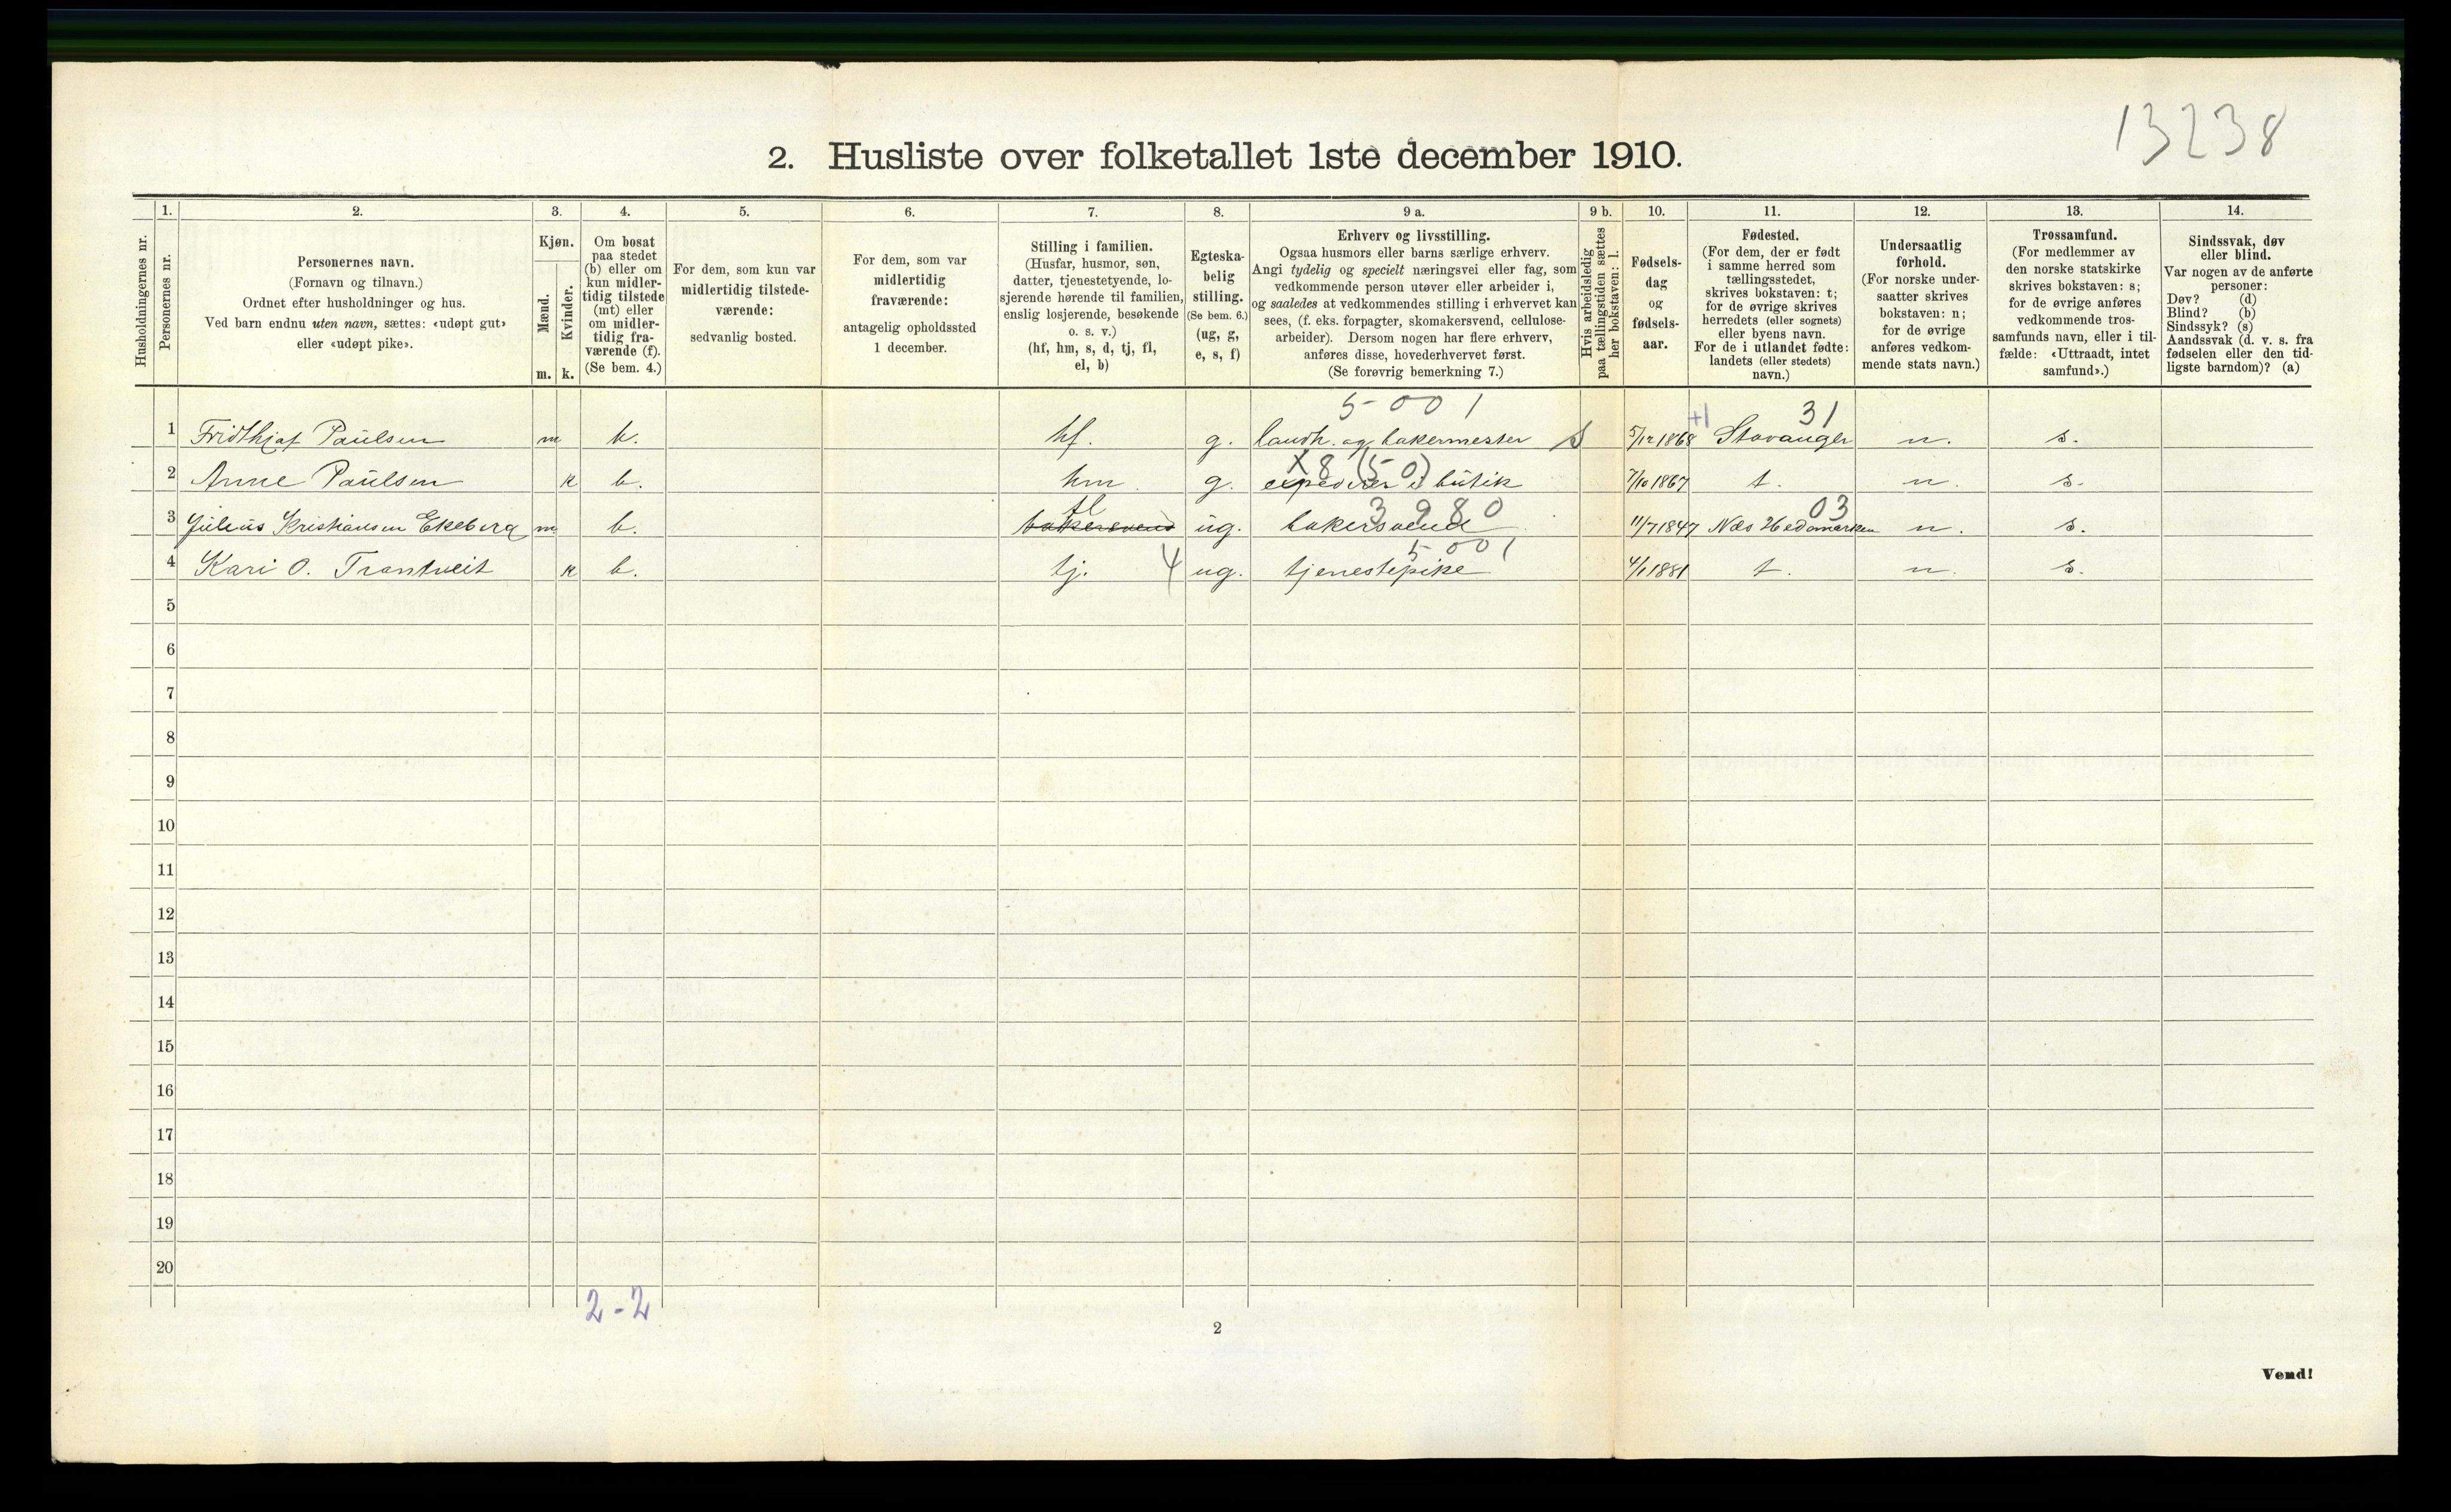 13238
2. Husliste over folketallet 1ste december 1910.
Husholdningernes nr.
1.
Personernes nr.
2.
Personernes navn.
(Fornavn og tilnavn.)
Ordnet efter husholdninger og hus.
Ved barn endnu uten navn, sættes: «udøpt gut»
eller «udøpt pike».
3.
Kjøn.
Mænd.
Kvinder.
m. k.
4.
Om bosat
paa stedet
(b) eller om
kun midler-
tidig tilstede
(mt) eller
om midler-
tidig fra-
værende (f).
(Se bem. 4.)
5.
For dem, som kun var
midlertidig tilstede-
værende:
sedvanlig bosted.
6.
For dem, som var
midlertidig
fraværende:
antagelig opholdssted
1 december.
7.
Stilling i familien.
(Husfar, husmor, søn,
datter, tjenestetyende, lo-
sjerende hørende til familien,
enslig losjerende, besøkende
o. s. v.)
(hf, hm, s, d, tj, fl,
el, b)
8.
Egteska-
belig
stilling.
(Se bem. 6.)
(ug, g,
e, s, f)
9 a.
Erhverv og livsstilling.
Ogsaa husmors eller barns særlige erhverv.
Angi tydelig og specielt næringsvei eller fag, som
vedkommende person utøver eller arbeider i,
og saaledes at vedkommendes stilling i erhvervet kan
sees, (f. eks. forpagter, skomakersvend, cellulose-
arbeider). Dersom nogen har flere erhverv,
anføres disse, hovederhvervet først.
(Se forøvrig bemerkning 7.)
9 b.
Hvis arbeidsledig
paa tællingstiden sættes
her bokstaven: l.
10.
Fødsels-
dag
og
fødsels-
aar.
11.
Fødested.
(For dem, der er født
i samme herred som
tællingsstedet,
skrives bokstaven: t;
for de øvrige skrives
herredets (eller sognets)
eller byens navn.
For de i utlandet fødte:
landets (eller stedets)
navn.)
12.
Undersaatlig
forhold.
(For norske under-
saatter skrives
bokstaven: n;
for de øvrige
anføres vedkom-
mende stats navn.)
13.
Trossamfund.
(For medlemmer av
den norske statskirke
skrives bokstaven: s;
for de øvrige anføres
vedkommende tros-
samfunds navn, eller i til-
fælde: «Uttraadt, intet
samfund».)
14.
Sindssvak, døv
eller blind.
Var nogen av de anførte
personer:
Døv? (d)
Blind? (b)
Sindssyk? (s)
Aandssvak (d. v. s. fra
fødselen eller den tid-
ligste barndom)? (a)
5001 +1 31
1 Fridthjof Paulsen m b. hf. g. landh. og bakermester S 5/12 1868 Stavanger n. s.
X8 (50)
2 Anne Paulsen k b. hm. g. expederer i butik 7/10 1867 t. n. s.
fl 3980 03
3 Julius Kristiansen Ekeberg m b. bakersvend ug. bakersvend 11/7 1847 Næs Hedemarken n. s.
5001
4 Kari O. Trantveit k b. tj. 4 ug. tjenestepike 4/1 1881 t. n. s.
5
6
7
8
9
10
11
12
13
14
15
16
17
18
19
20
2-2
2
Vend!